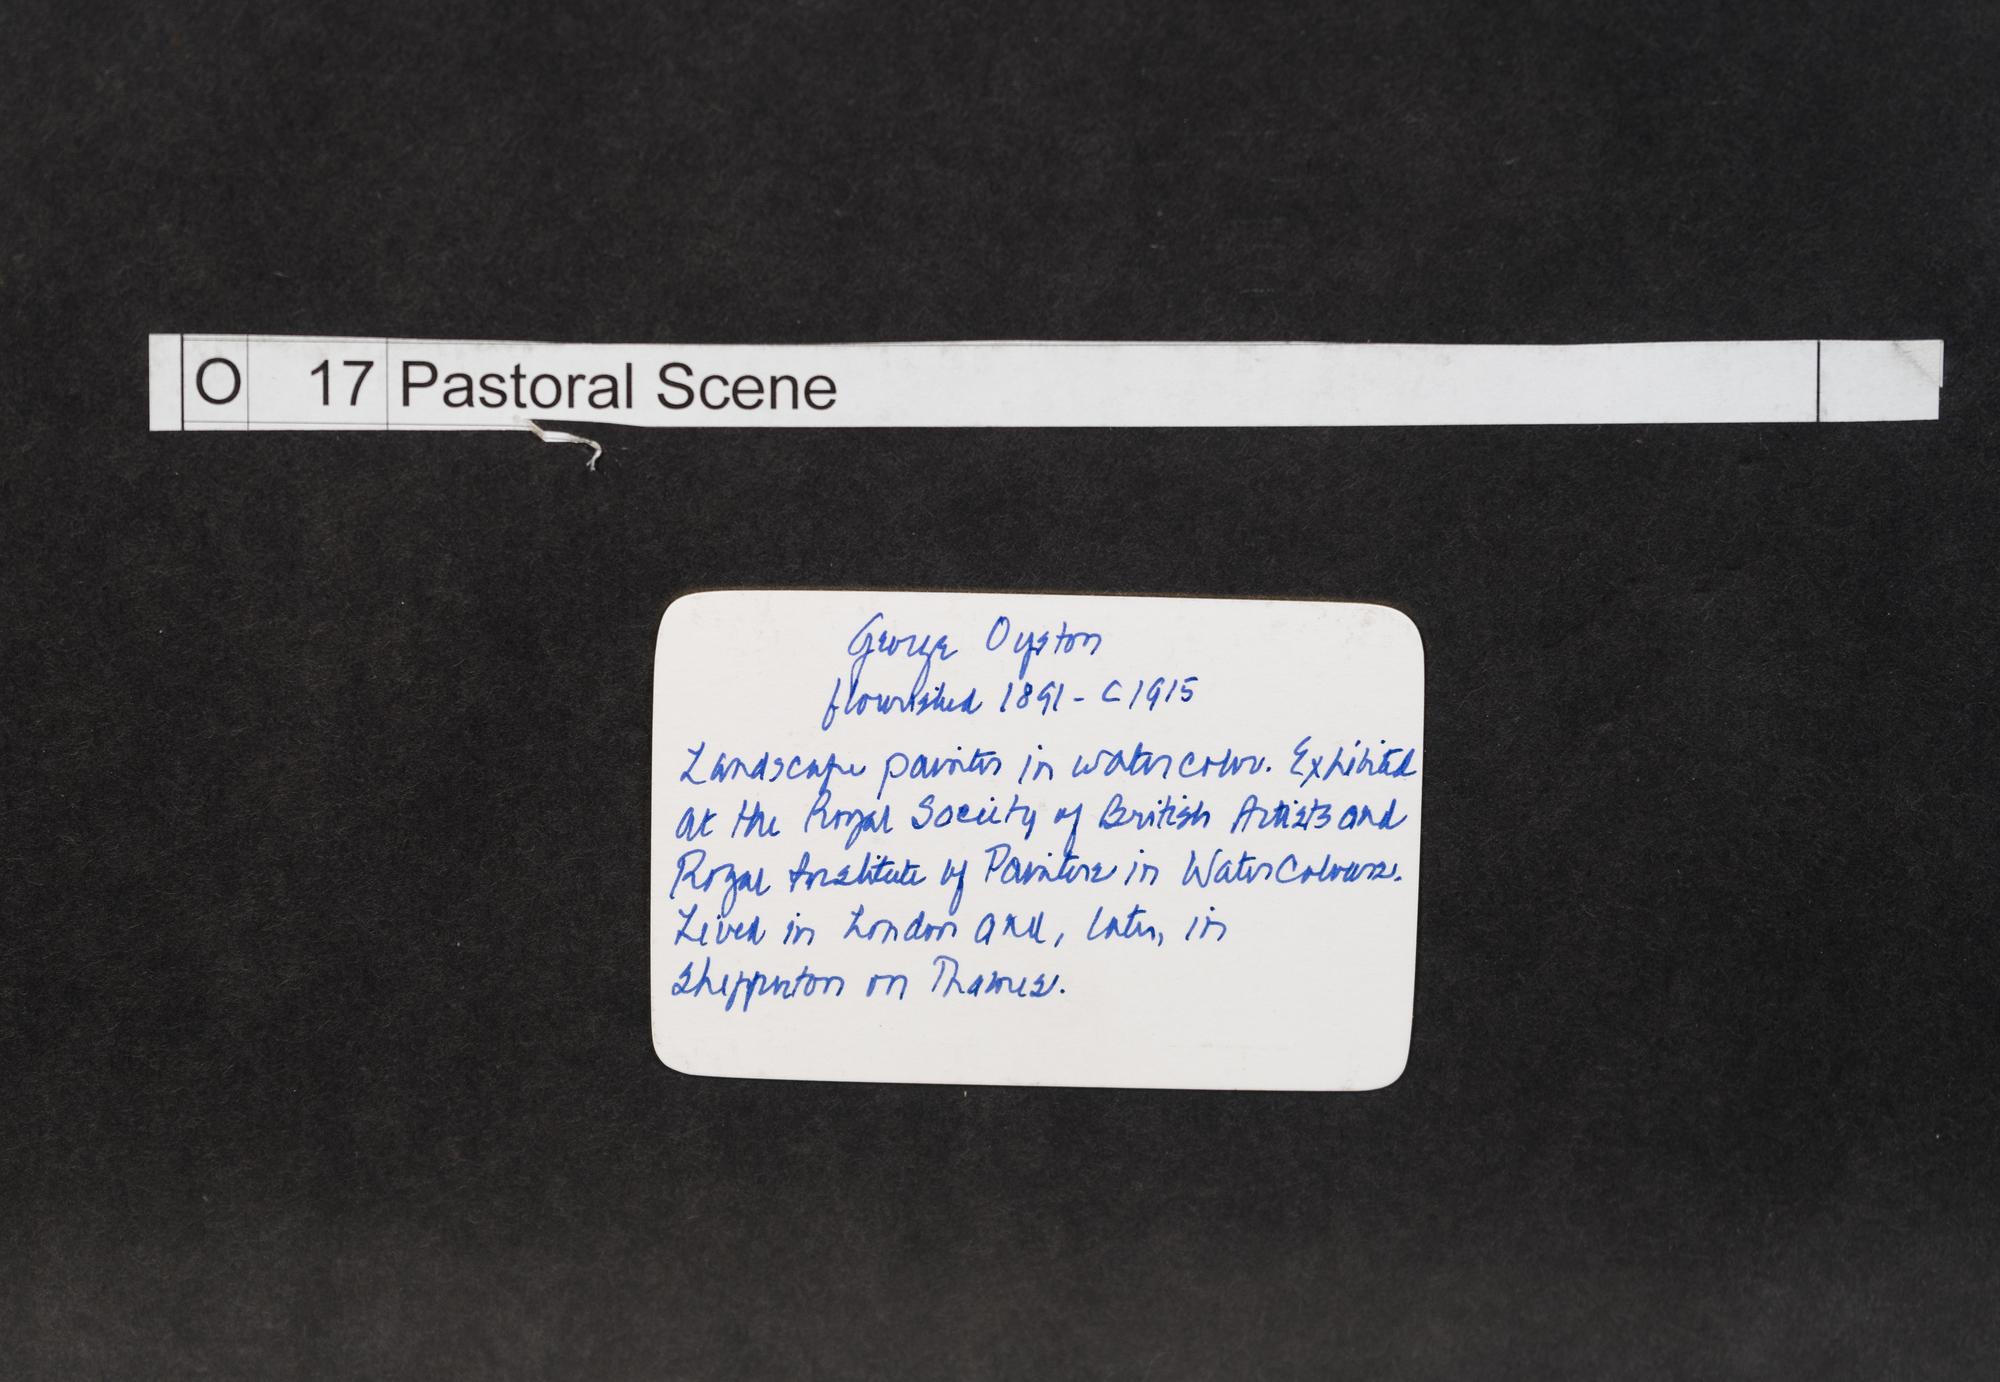 O 17 Pastoral Scene
George Oyston
flourished 1891 - C1915
Landscape painter in watercolour. Exhibited
at the Royal Society of British Artists and
Royal Institute of Painters in Water Colours.
Lived in London and, later, in
Shepperton on Thames.